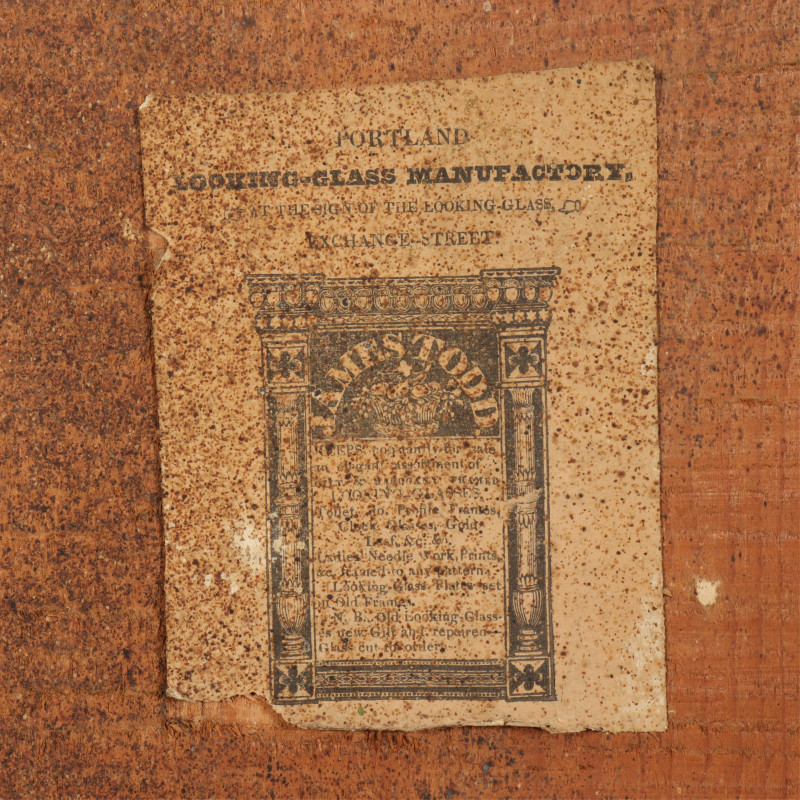 PORTLAND
LOOKING-GLASS MANUFACTORY,
AT THE SIGN OF THE LOOKING-GLASS,
EXCHANGE-STREET.
JAMES TODD
KEEPS constantly for sale
an elegant assortment of
GILT & MAHOGANY FRAMED
LOOKING GLASSES,
Toilet, do. Profile Frames,
Clock Glasses, Gold
Leaf, &c. &c.
Ladies' Needle Work, Prints,
&c. framed to any pattern.
Looking-Glass Plates set
in Old Frames.
N. B. Old Looking-Glass-
es new Gilt and repaired—
Glass cut to order.